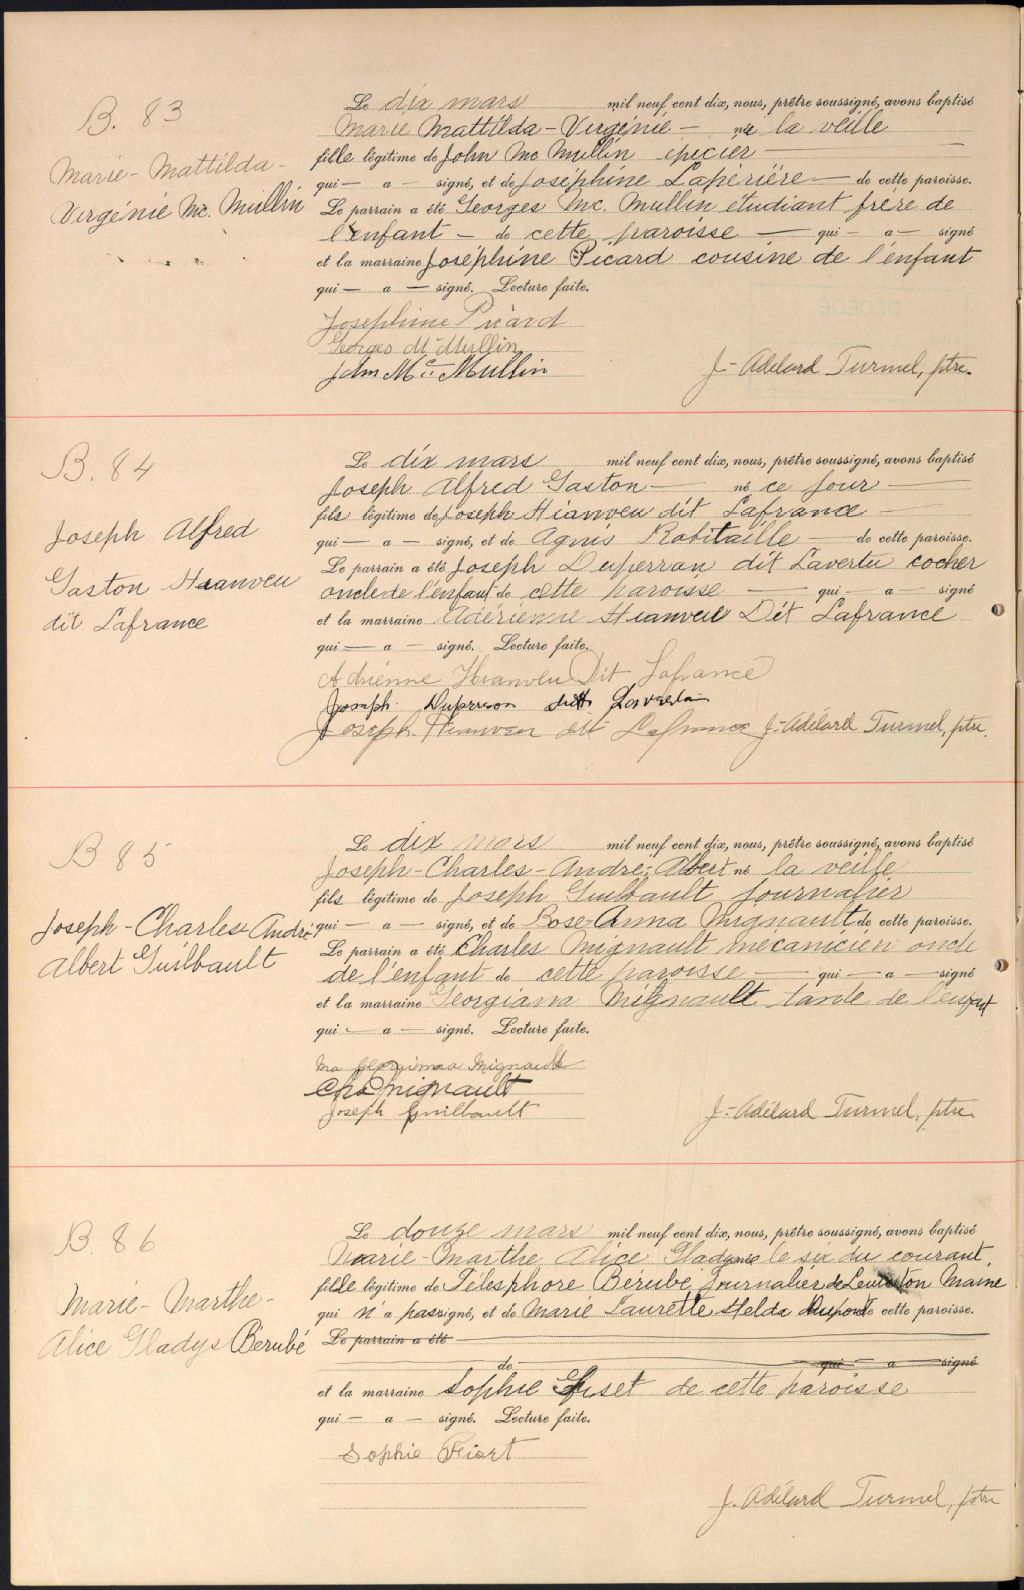 B. 83
Marie-Mattilda-
Virgénie Mc. Mullin
Le dix mars mil neuf cent dix, nous, prêtre soussigné, avons baptisé
Marie Mattilda-Virgénie — née la veille
fille légitime de John Mc Mullin epicier —
qui — a — signé, et de Joséphine Lapérière — de cette paroisse.
Le parrain a été Georges Mc. Mullin étudiant frère de
l'enfant — de cette paroisse — qui — a — signé
et la marraine Joséphine Picard cousine de l'enfant
qui — a — signé. Lecture faite.
Josephine Picard
Georges Mc Mullin
John Mc Mullin
J.-Adélard Turmel, ptre.
B. 84
Joseph Alfred
Gaston Hianveu
dit Lafrance
Le dix mars mil neuf cent dix, nous, prêtre soussigné, avons baptisé
Joseph Alfred Gaston — né ce jour —
fils légitime de Joseph Hianveu dit Lafrance —
qui — a — signé, et de Agnis Robitaille — de cette paroisse.
Le parrain a été Joseph Duperran dit Lavertu cocher
oncle de l'enfant de cette paroisse — qui — a — signé
et la marraine Adérienne Hianveu Dit Lafrance
qui — a — signé. Lecture faite.
Adrienne Hianveu Dit Lafrance
Joseph dit
Joseph Hianveu dit Lafrance J.-Adélard Turmel, ptre.
B 85
Joseph-Charles-André
Albert Guilbault
Le dix mars mil neuf cent dix, nous, prêtre soussigné, avons baptisé
Joseph-Charles-André-Albert né la veille
fils légitime de Joseph Guilbault journalier
qui — a — signé, et de Rose-Anna Mignault de cette paroisse.
Le parrain a été Charles Mignault mecanicien oncle
de l'enfant de cette paroisse — qui — a — signé
et la marraine Georgiana Mignault tante de l'enfant
qui — a — signé. Lecture faite.
Mignault
Chs Mignault
Joseph Guilbault
J.-Adélard Turmel, ptre
B. 86
Marie-Marthe-
Alice Gladys Bérubé
Le douze mars mil neuf cent dix, nous, prêtre soussigné, avons baptisé
Marie-Marthe Alice Gladys née le six du courant,
fille légitime de Télesphore Bérubé, journalier de Lewiston Maine
qui n'a pas signé, et de Marie Laurette Helda Dupont de cette paroisse.
Le parrain a été
de — qui — a — signé
et la marraine Sophie Fiset de cette paroisse
qui — a — signé. Lecture faite.
Sophie Fiset
J. Adélard Turmel, ptre